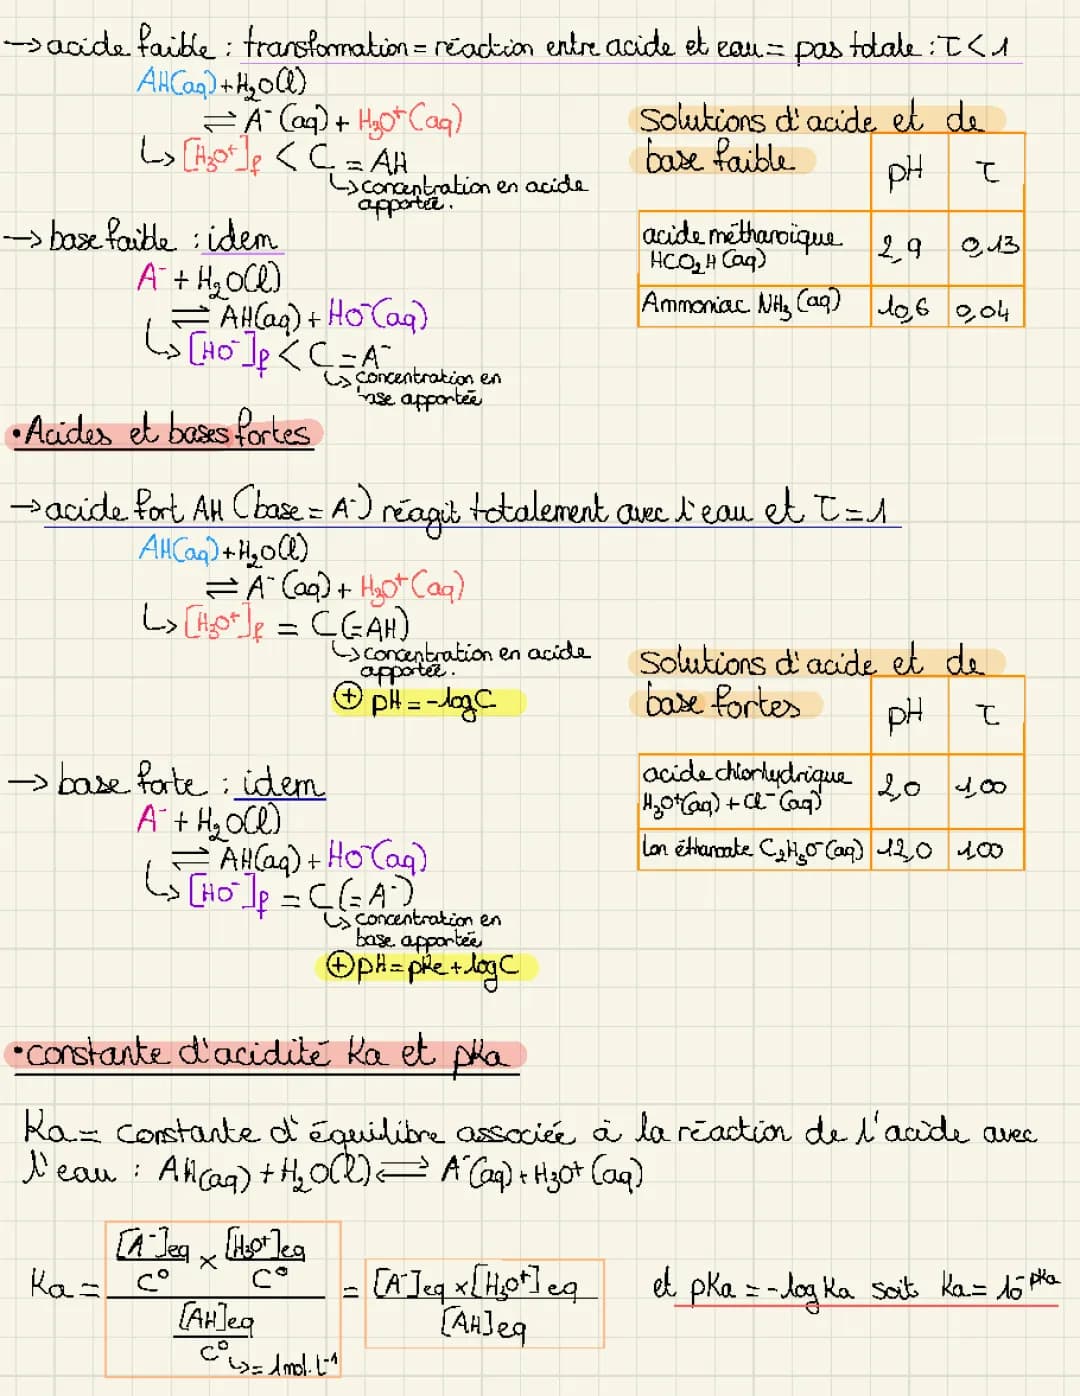 → acide faible : transformation = réaction entre acide et eau = pas totale : τ < 1
AH(aq) + H₂O(l)
⇌ A⁻(aq) + H₃O⁺(aq)
↳ [H₃O⁺]f < C = AH
↳ concentration en acide
apportée.
Solutions d'acide et de
base faible
pH τ
acide méthanoïque
HCO₂H(aq)
2,9 0,13
Ammoniac NH₃(aq) 10,6 0,04
→ base faible : idem
A⁻ + H₂O(l)
⇌ AH(aq) + HO⁻(aq)
↳ [HO⁻]f < C = A⁻
↳ concentration en
base apportée
• Acides et bases fortes
→ acide fort AH (base = A⁻) réagit totalement avec l'eau et τ = 1
AH(aq) + H₂O(l)
⇌ A⁻(aq) + H₃O⁺(aq)
↳ [H₃O⁺]f = C (= AH)
↳ concentration en acide
apportée.
⊕ pH = -log C
Solutions d'acide et de
base fortes
pH τ
acide chlorhydrique
H₃O⁺(aq) + Cl⁻(aq)
2,0 1,00
Ion éthanoate C₂H₅O⁻(aq) 12,0 1,00
→ base forte : idem
A⁻ + H₂O(l)
⇌ AH(aq) + HO⁻(aq)
↳ [HO⁻]f = C (= A⁻)
↳ concentration en
base apportée
⊕ pH = pKe + log C
• constante d'acidité Ka et pKa
Ka = constante d'équilibre associée à la réaction de l'acide avec
l'eau : AH(aq) + H₂O(l) ⇌ A⁻(aq) + H₃O⁺(aq)
Ka = [A⁻]eq/C° × [H₃O⁺]eq/C° / [AH]eq/C° = [A⁻]eq × [H₃O⁺]eq / [AH]eq et pKa = -log Ka soit Ka = 10⁻ᵖᴷᵃ
↳ = 1mol.L⁻¹